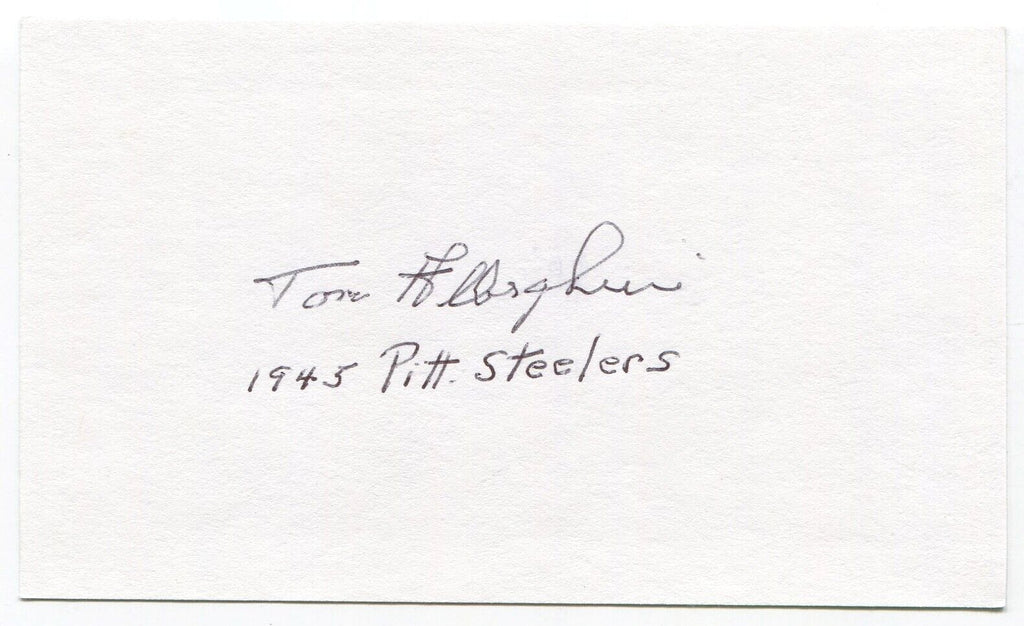 Tom Alberghini
1945 Pitt. Steelers